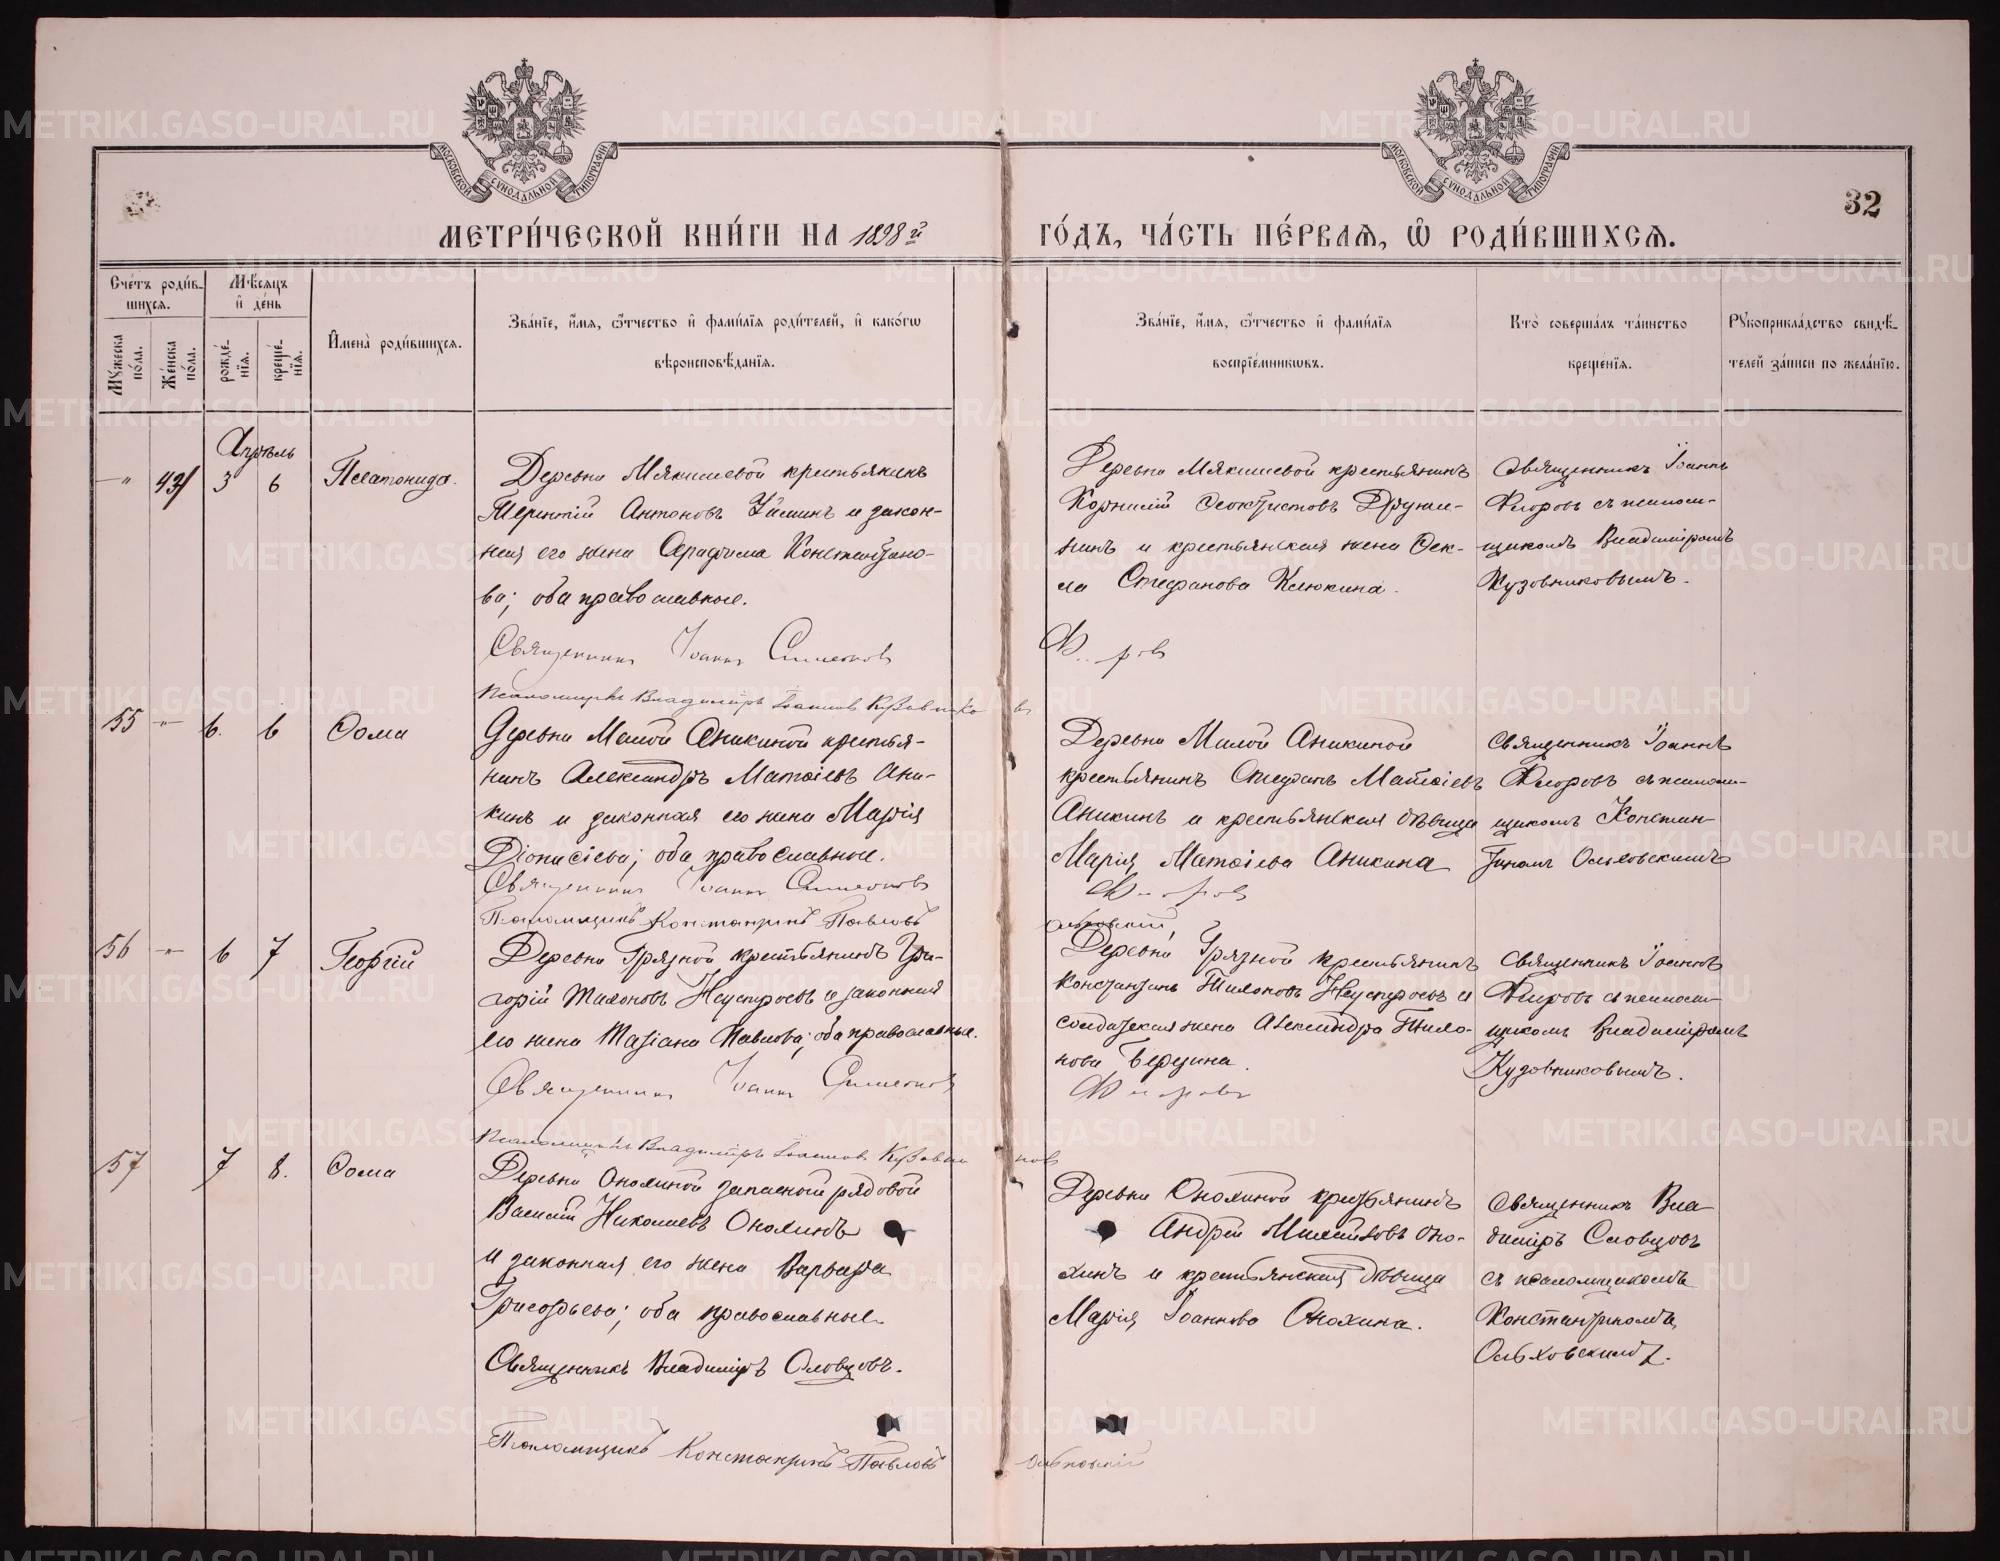 МОСКОВСКОЙ СѴНОДАЛЬНОЙ ТИПОГРАФІИ
МОСКОВСКОЙ СѴНОДАЛЬНОЙ ТИПОГРАФІИ
32
МЕТРИ́ЧЕСКОЙ КНИ́ГИ НА 1898й
ГО́ДЪ, ЧА́СТЬ ПЕ́РВАЯ, Ѡ РОДИ́ВШИХСЯ.
Сче́тъ роди́в-
шихся.
Мѣ́сяцъ
и де́нь
Мꙋ́жеска по́ла.
Же́нска по́ла.
рожде́-
нїя.
креще́-
нїя.
И҆мена̀ роди́вшихся.
Зва́нїе, и҆́мя, ѻ҆́тчество и҆ фами́лїя роди́телей, и҆ како́гѡ
вѣроисповѣ́данїя.
Зва́нїе, и҆́мя, ѻ҆́тчество и҆ фами́лїя
воспрїе́мникѡвъ.
Кто̀ соверша́лъ та́инство
креще́нїя.
Рꙋкоприкла́дство свидѣ́-
телей за́писи по жела́нїю.
Апрѣль
-"- 43 3 6 Платонида.
Деревни Мякишевой крестьянинъ
Терентій Антоновъ и закон-
ная его жена Серафима Константино-
ва; оба православные.
Священникъ Іоаннъ Симеоновъ
Псаломщикъ Владимiръ Іоанновъ Кузовников
Деревни Мякишевой крестьянинъ
Корнилій Ѳеоктистовъ Дружи-
нинъ и крестьянская жена Ѳек-
ла Стефанова Клюкина.
Священникъ Іоаннъ
Флоровъ съ псалом-
щикомъ Владиміромъ
Кузовниковымъ.
55 -"- 6. 6 Ѳома
Деревни Малой Аникиной крестья-
нинъ Александръ Матѳіевъ Ани-
кинъ и законная его жена Марія
Діонисіева; оба православные.
Священникъ Іоаннъ Симеоновъ
Псаломщикъ Константинъ Павловъ
Деревни Малой Аникиной
крестьянинъ Стефанъ Матѳіевъ
Аникинъ и крестьянская дѣвица
Марія Матѳіева Аникина
Флоровъ
Священникъ Іоаннъ
Флоровъ съ псалом-
щикомъ Констан-
тиномъ Ольховскимъ
56 -"- 6 7 Георгій
Деревни Грязной крестьянинъ Гри-
горій Тихоновъ Неустроевъ и законная
его жена Татіана Павлова; оба православные.
Священникъ Іоаннъ Симеоновъ
Псаломщикъ Владимiръ Іоанновъ Кузовников
Деревни Грязной крестьянинъ
Константинъ Тихоновъ Неустроевъ и
солдатская жена Александра Тихо-
нова Берзина.
Флоровъ
Священникъ Іоаннъ
Флоровъ съ псалом-
щикомъ Владиміромъ
Кузовниковымъ.
57 7 8. Ѳома
Деревни Онохиной запасной рядовой
Василій Николаевъ Онохинъ
и законная его жена Варвара
Григорьева; оба православные.
Священникъ Владиміръ Словцовъ.
Псаломщикъ Константинъ Павловъ
Ольховскій
Деревни Онохиной крестьянинъ
Андрей Михайловъ Оно-
хинъ и крестьянская дѣвица
Марія Іоаннова Онохина.
Священникъ Вла-
диміръ Словцовъ
съ псаломщикомъ
Константиномъ
Ольховскимъ.